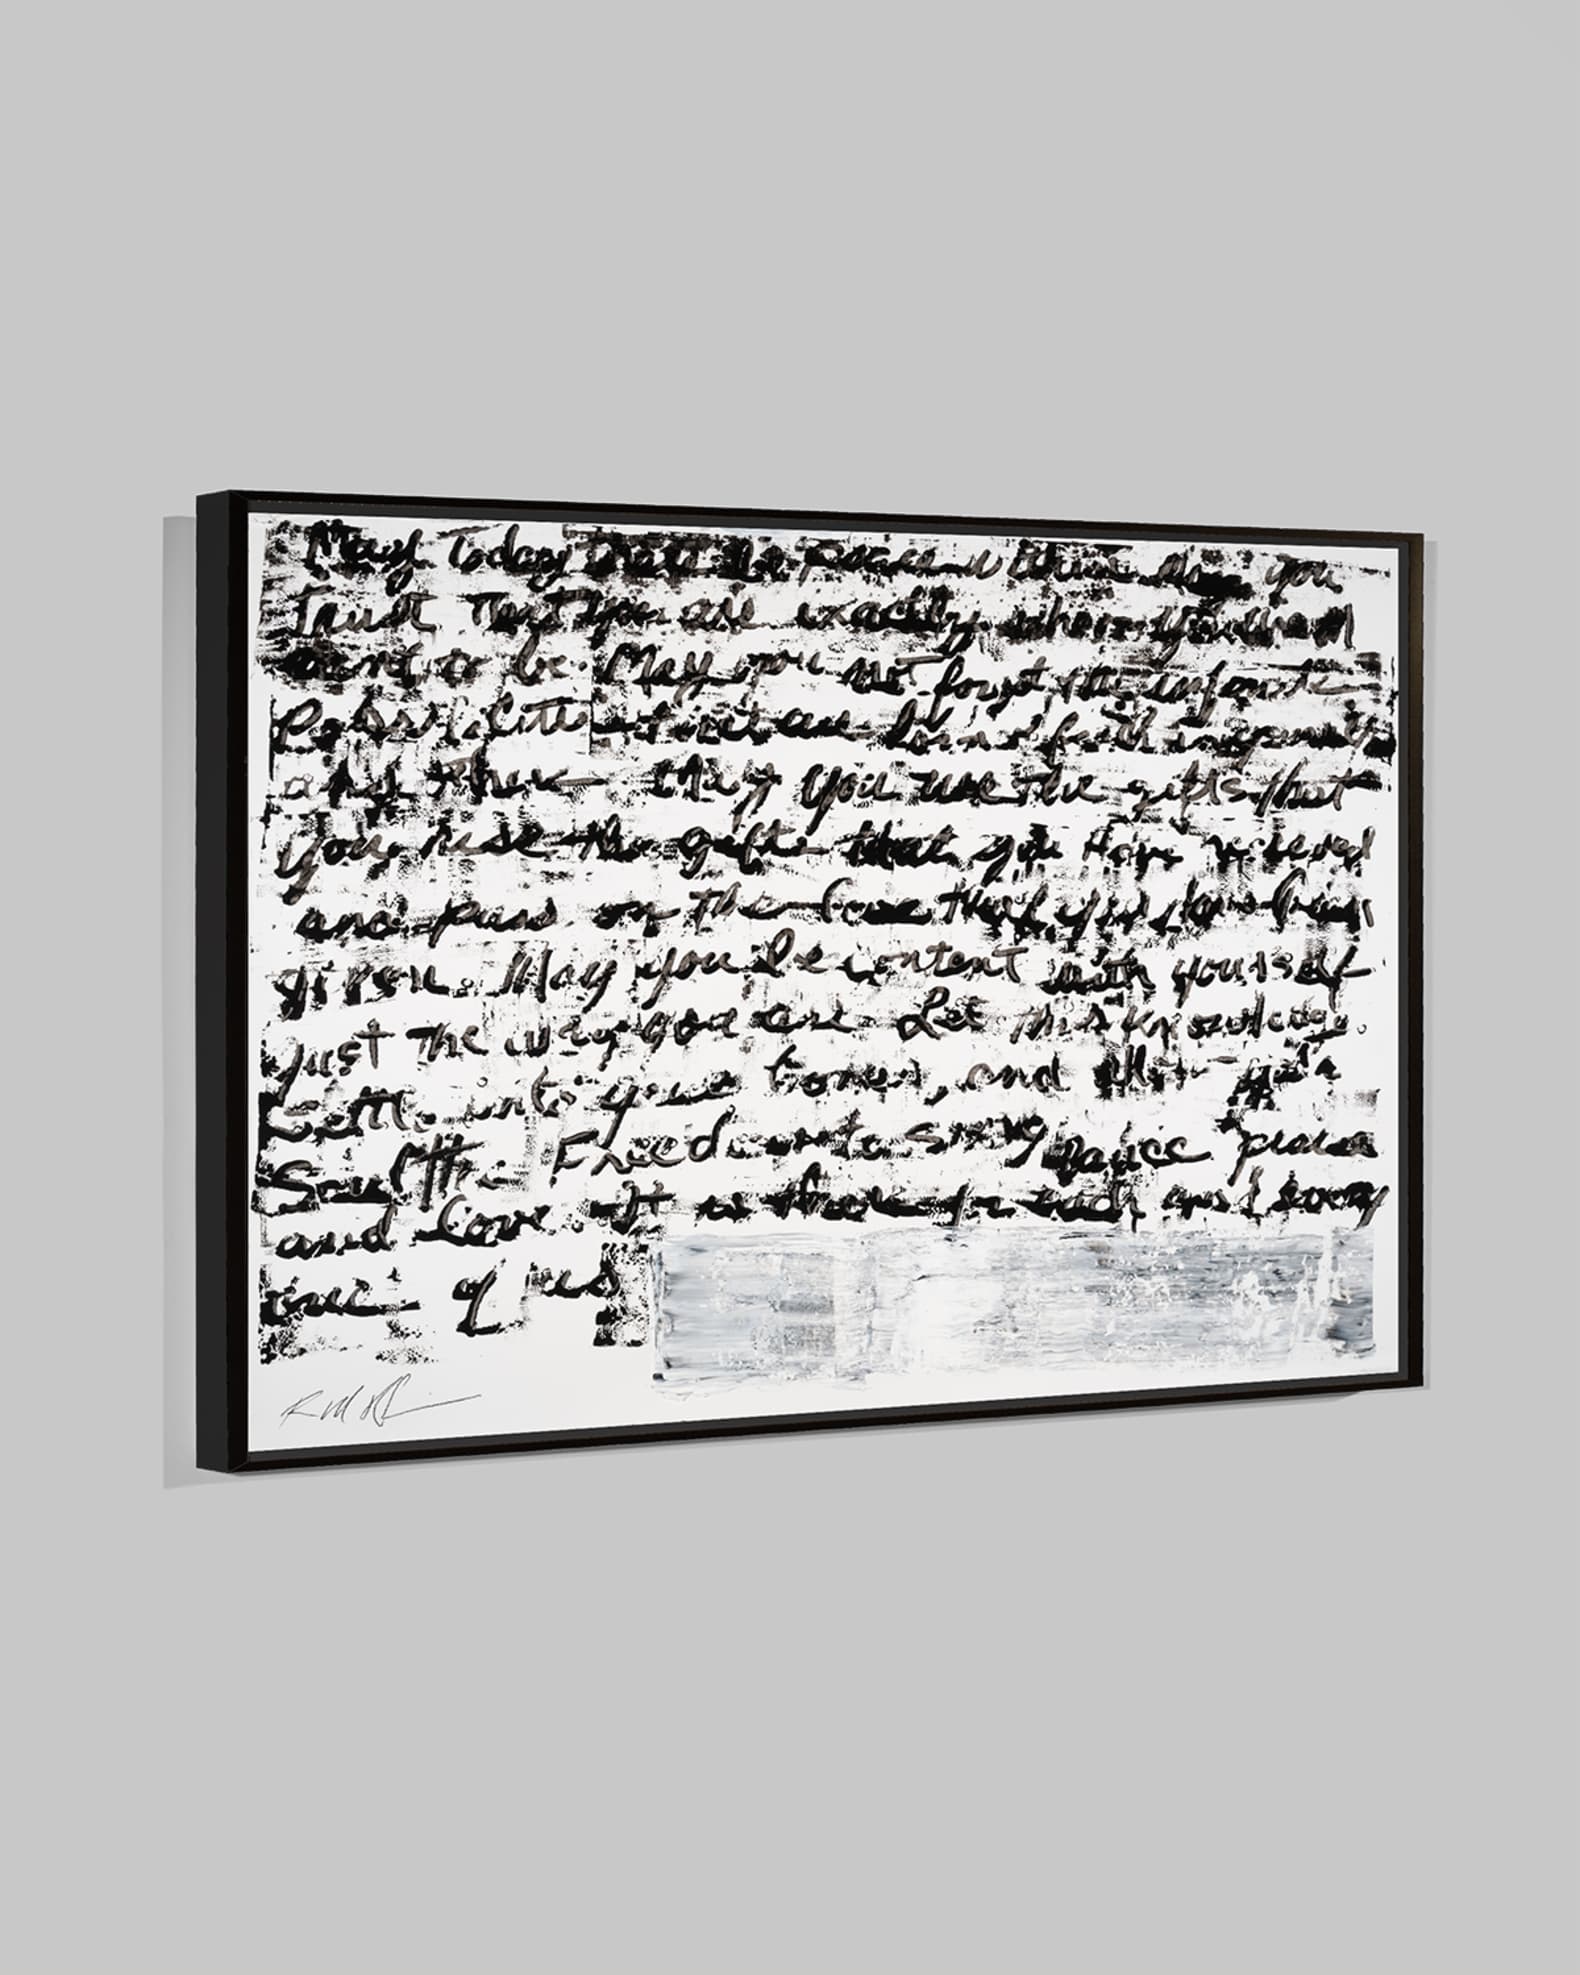 May Today there be peace within as you
trust that you are exactly where you
ment to be. May you not forget the infinite
Possibilities that are born of faith in yourself
and others May you use the gifts that
you use the gifts that you have received
and pass on the love that you have been
given. May you be content with yourself
just the way you are Let this knowledge.
Settle into your bones, and allow
Soul the Freedom to sing dance praise
and love. It is there for each and every
one of us